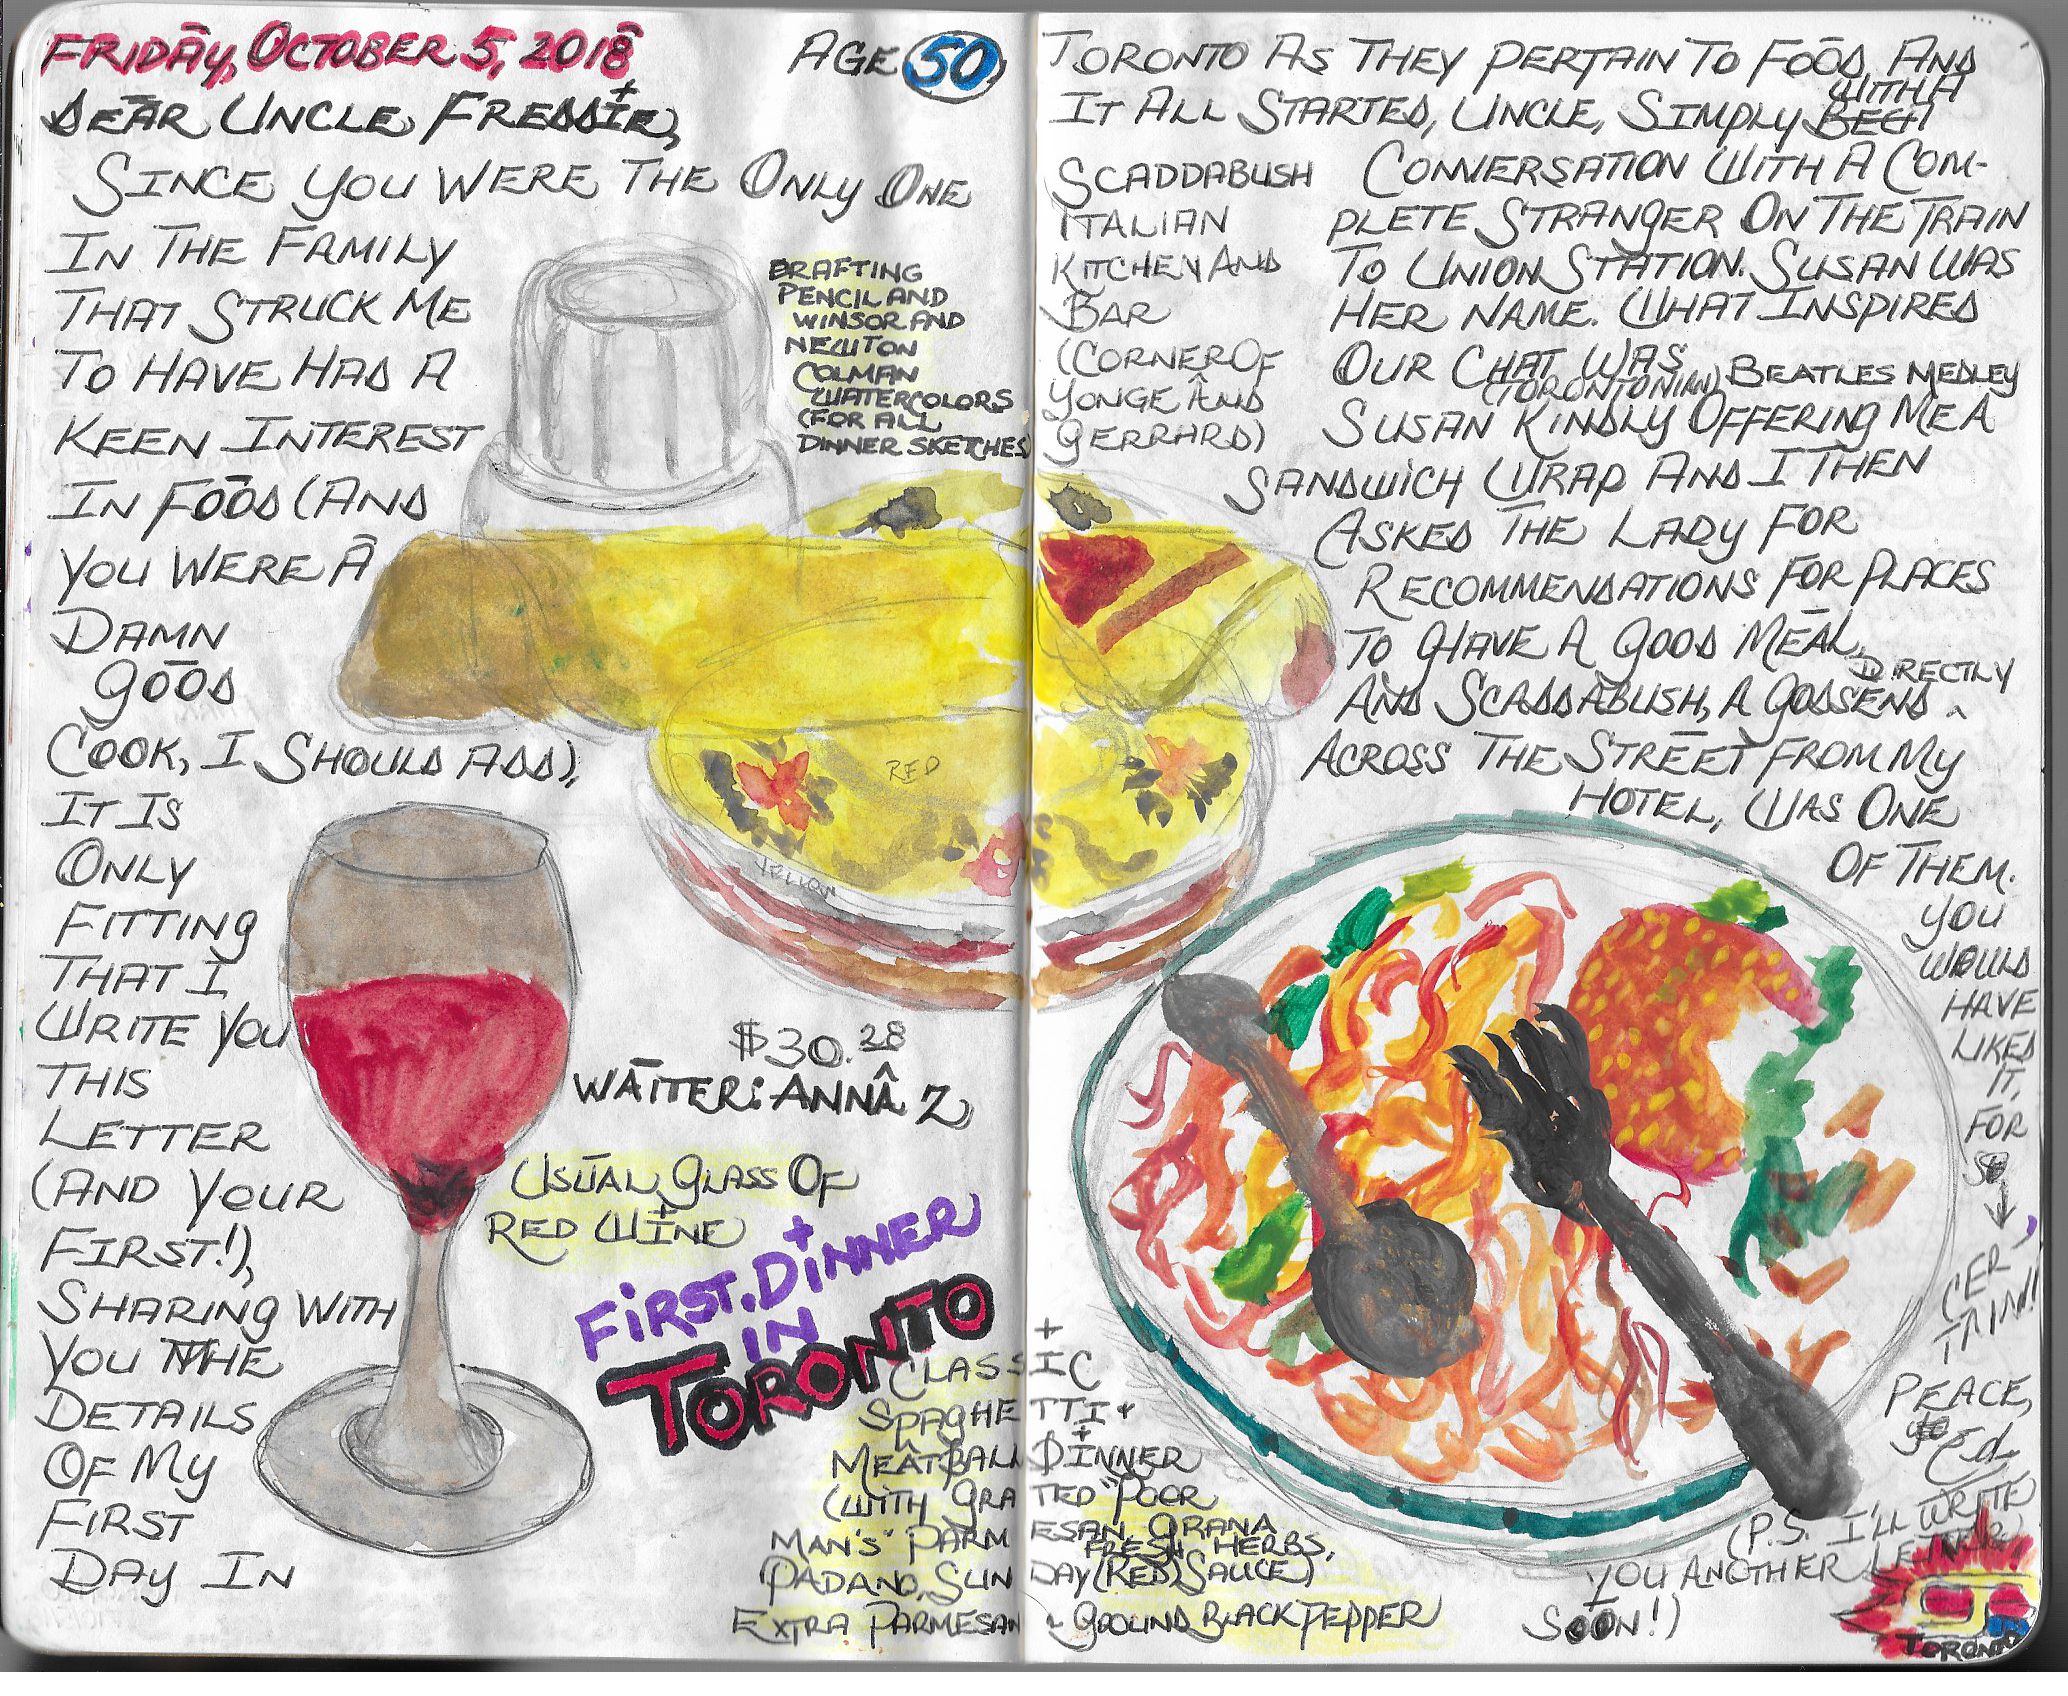 FRIDAY, OCTOBER 5, 2018
AGE 50
DEAR UNCLE FREDDIE,
SINCE YOU WERE THE ONLY ONE
IN THE FAMILY
THAT STRUCK ME
TO HAVE HAD A
KEEN INTEREST
IN FOOD (AND
YOU WERE A
DAMN
GOOD
COOK, I SHOULD ADD),
IT IS
ONLY
FITTING
THAT I
WRITE YOU
THIS
LETTER
(AND YOUR
FIRST!),
SHARING WITH
YOU THE
DETAILS
OF MY
FIRST
DAY IN
DRAFTING
PENCIL AND
WINSOR AND
NEWTON
COLMAN
WATERCOLORS
(FOR ALL
DINNER SKETCHES)
RED
YELLOW
$30.28
WAITER: ANNA Z
USUAL GLASS OF
RED WINE
FIRST DINNER
IN
TORONTO
CLASSIC
SPAGHETTI +
MEATBALL DINNER
(WITH GRATED "POOR
MAN'S" PARMESAN, GRANA
FRESH HERBS,
PADANO, SUNDAY (RED) SAUCE)
EXTRA PARMESAN & GOOUND BLACK PEPPER
TORONTO AS THEY PERTAIN TO FOOD. AND
WITH A
IT ALL STARTED, UNCLE, SIMPLY
SCADDABUSH
ITALIAN
KITCHEN AND
BAR
(CORNER OF
YONGE AND
GERRARD)
CONVERSATION WITH A COM-
PLETE STRANGER ON THE TRAIN
TO UNION STATION. SUSAN WAS
HER NAME. WHAT INSPIRED
OUR CHAT WAS
(TORONTONIAN) BEATLES MEDLEY
SUSAN KINDLY OFFERING ME A
SANDWICH WRAP AND I THEN
ASKED THE LADY FOR
RECOMMENDATIONS FOR PLACES
TO HAVE A GOOD MEAL,
DIRECTLY
AND SCADDABUSH, A GODSEND ^
ACROSS THE STREET FROM MY
HOTEL, WAS ONE
OF THEM.
YOU
WOULD
HAVE
LIKED
IT,
FOR
SO
CER-
TAIN!
PEACE,
Ed.
(P.S. I'LL WRITE
YOU ANOTHER LETTER
SOON!)
TORONTO